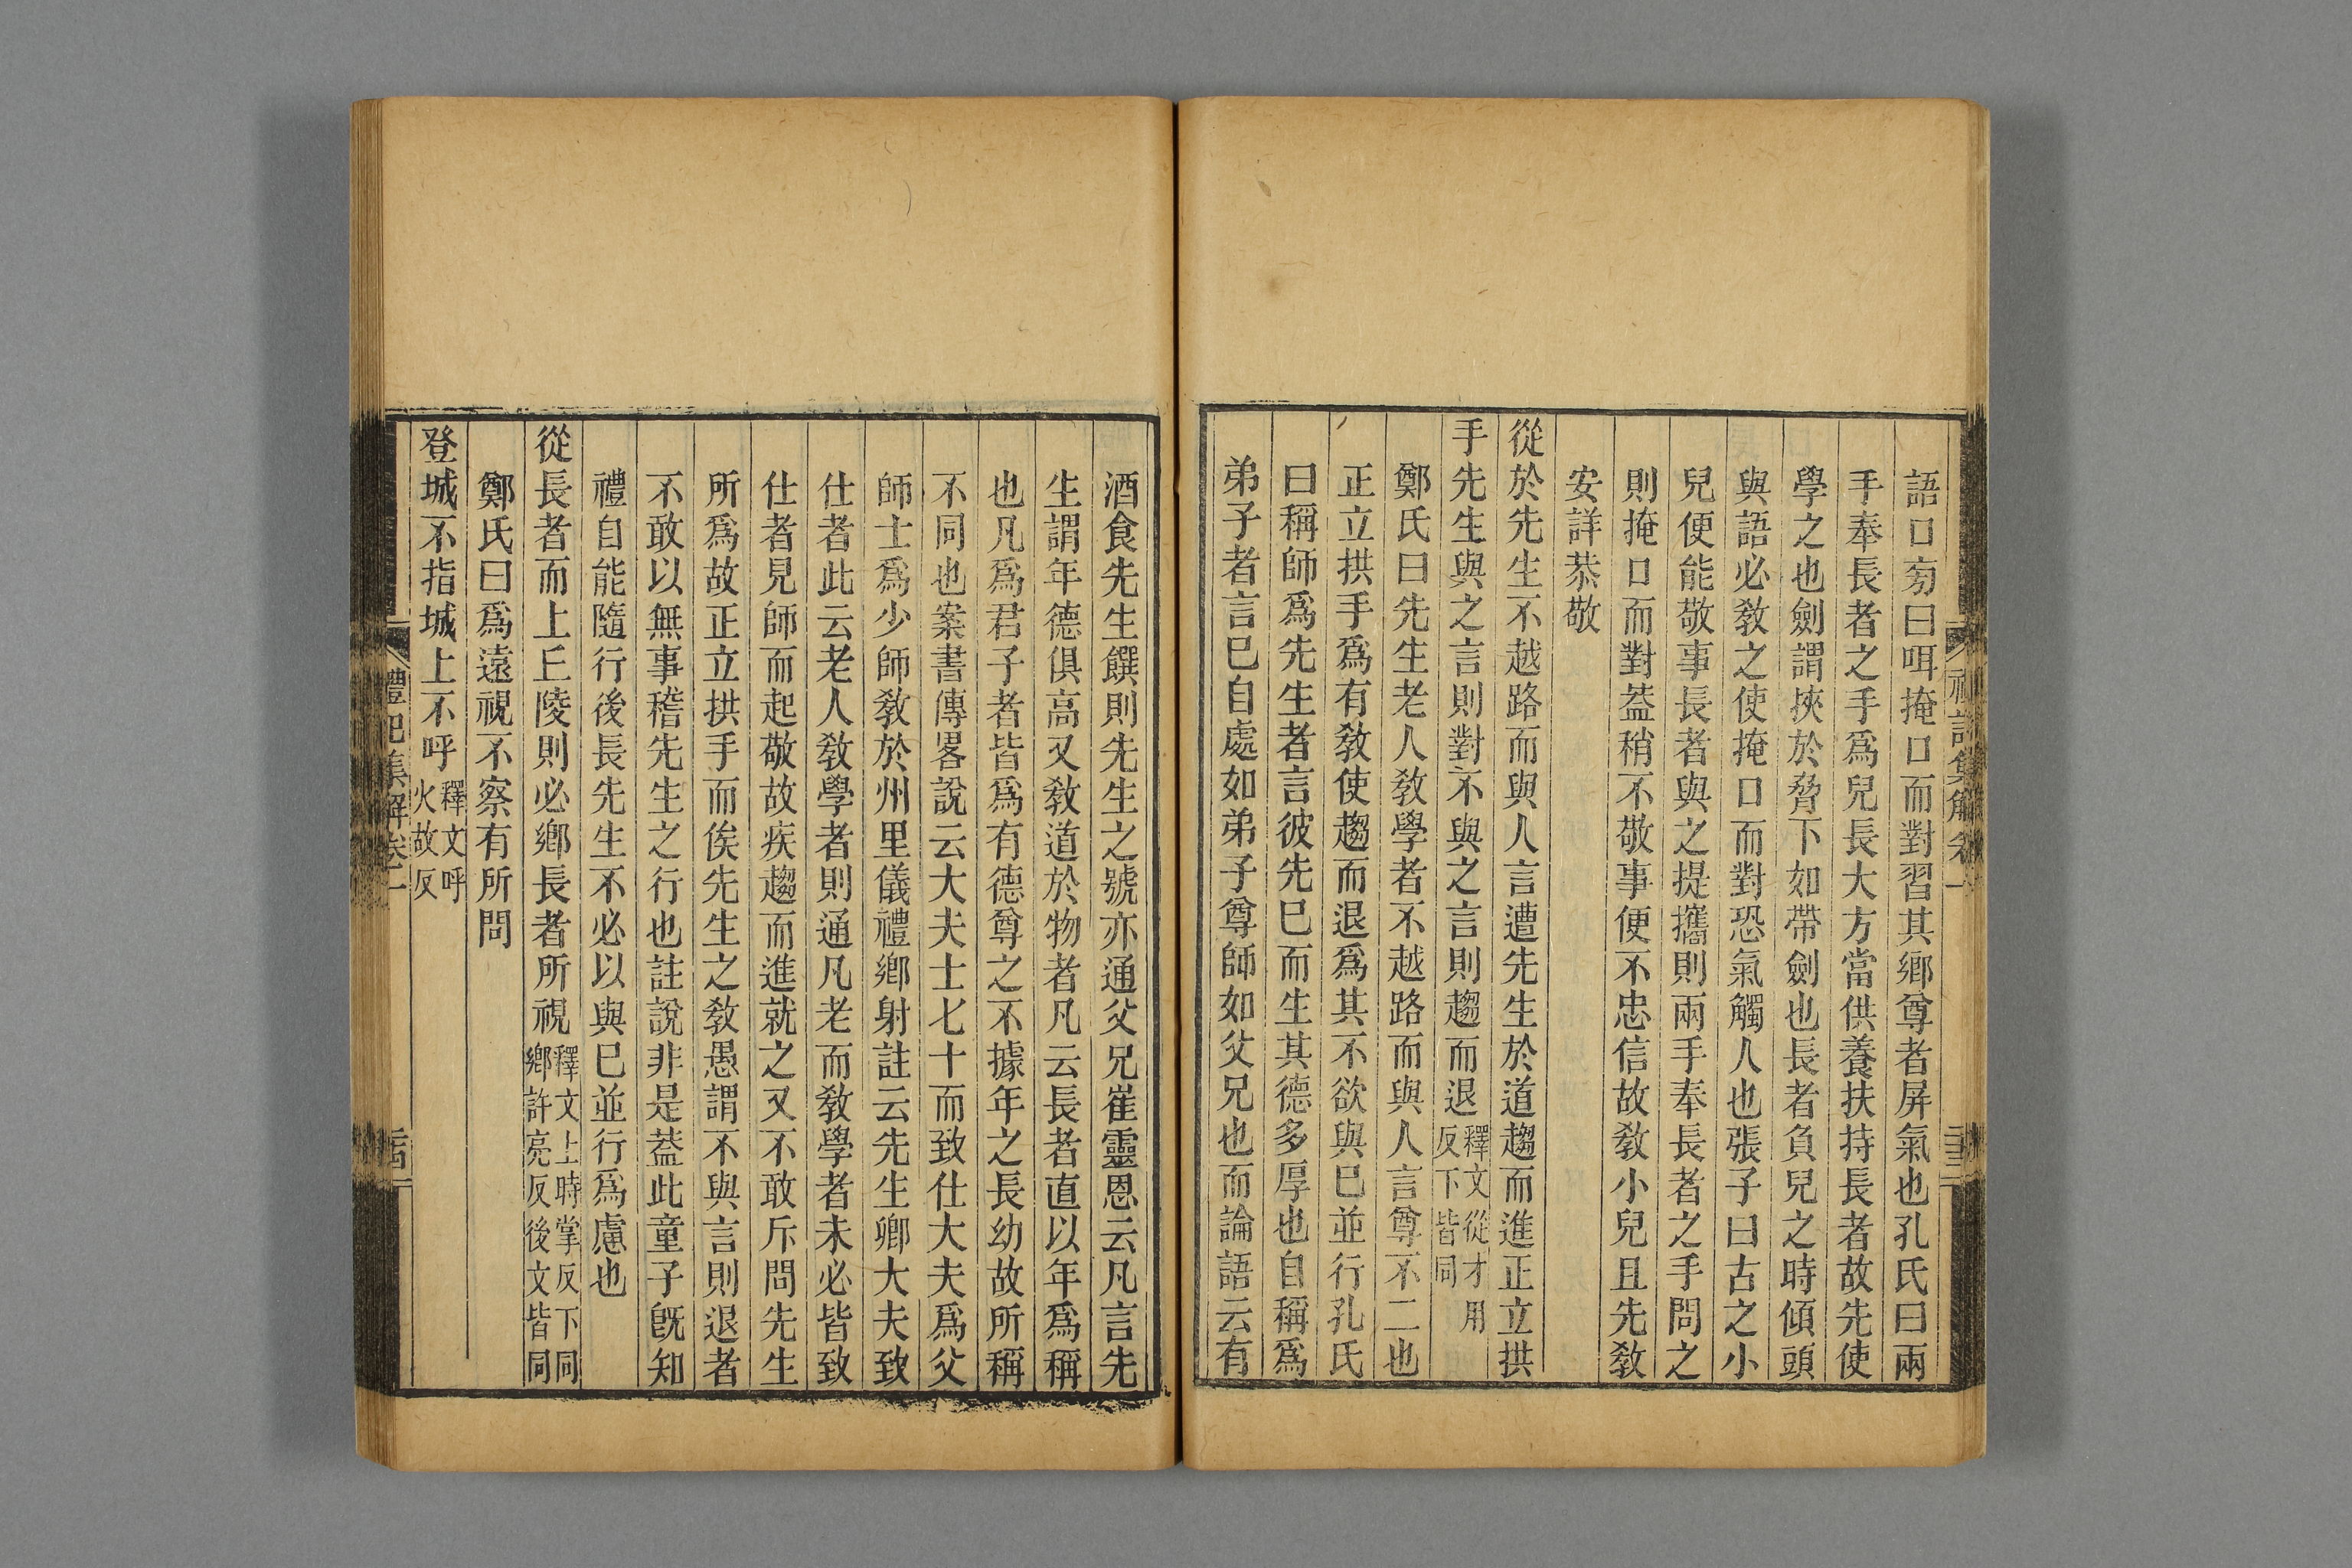 語口旁曰咡掩口而對習其鄉尊者屏氣也孔氏曰兩
手奉長者之手爲兒長大方當供養扶持長者故先使
學之也劍謂挾於脅下如帶劍也長者負兒之時傾頭
與語必敎之使掩口而對恐氣觸人也張子曰古之小
兒便能敬事長者與之提攜則兩手奉長者之手問之
則掩口而對葢稍不敬事便不忠信故敎小兒且先敎
安詳恭敬
從於先生不越路而與人言遭先生於道趨而進正立拱
手先生與之言則對不與之言則趨而退釋文從才用
反下皆同
鄭氏曰先生老人敎學者不越路而與人言尊不二也
正立拱手爲有敎使趨而退爲其不欲與巳並行孔氏
曰稱師爲先生者言彼先巳而生其德多厚也自稱爲
弟子者言巳自處如弟子尊師如父兄也而論語云有
酒食先生饌則先生之號亦通父兄崔靈恩云凡言先
生謂年德俱高又敎道於物者凡云長者直以年爲稱
也凡爲君子者皆爲有德尊之不據年之長幼故所稱
不同也案書傳畧說云大夫士七十而致仕大夫爲父
師士爲少師敎於州里儀禮鄉射註云先生卿大夫致
仕者此云老人敎學者則通凡老而敎學者未必皆致
仕者見師而起敬故疾趨而進就之又不敢斥問先生
所爲故正立拱手而俟先生之敎愚謂不與言則退者
不敢以無事稽先生之行也註說非是葢此童子旣知
禮自能隨行後長先生不必以與巳並行爲慮也
從長者而上丘陵則必鄉長者所視釋文上時掌反下同
鄉許亮反後文皆同
鄭氏曰爲遠視不察有所問
登城不指城上不呼釋文呼
火故反
禮記集解卷二